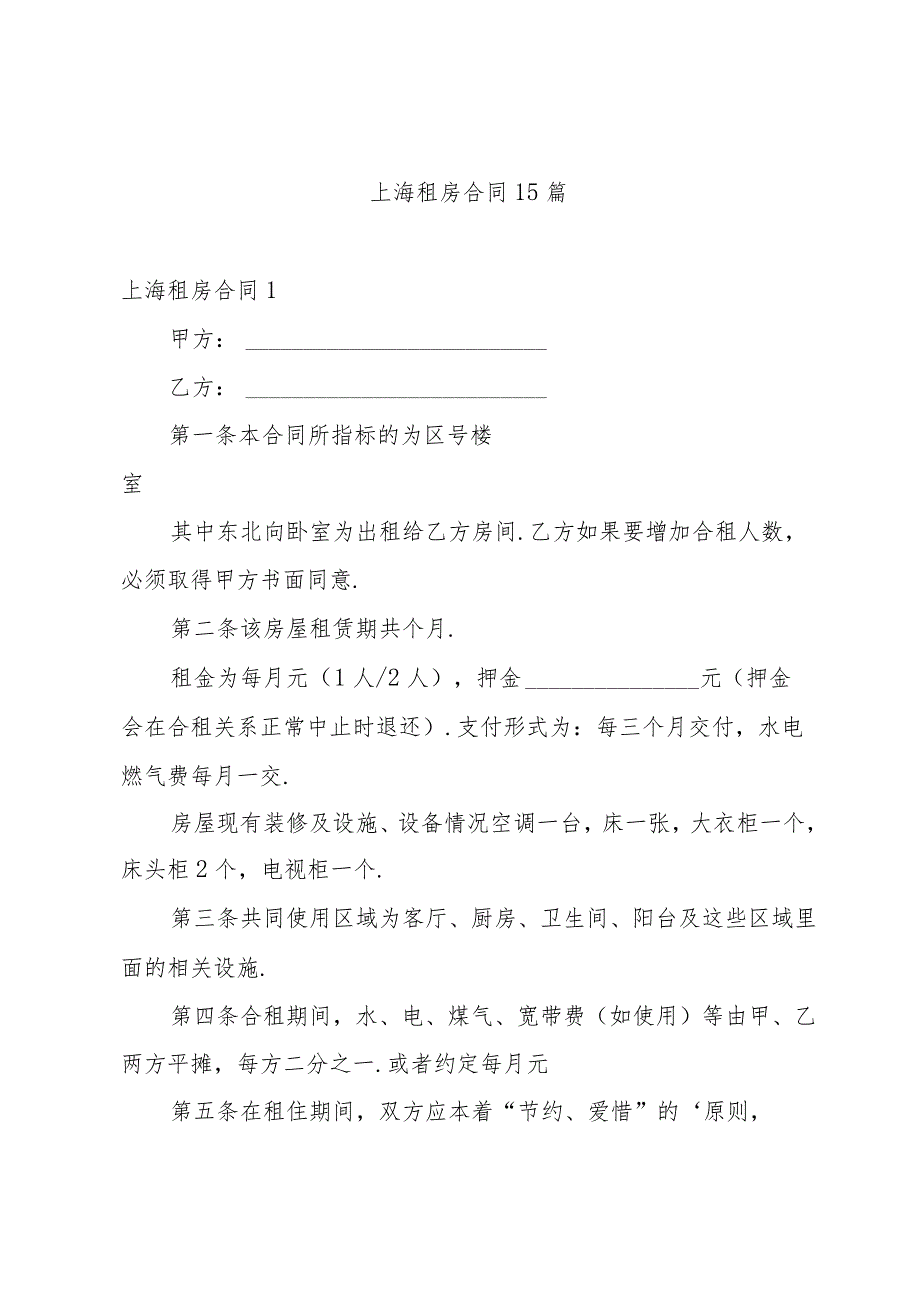 上海租房合同15篇
上海租房合同1
甲方：__________________________
乙方：__________________________
第一条本合同所指标的为区号楼
室
其中东北向卧室为出租给乙方房间.乙方如果要增加合租人数，
必须取得甲方书面同意.
第二条该房屋租赁期共个月.
租金为每月元（1人/2人），押金_______________元（押金
会在合租关系正常中止时退还）.支付形式为：每三个月交付，水电
燃气费每月一交.
房屋现有装修及设施、设备情况空调一台，床一张，大衣柜一个，
床头柜2个，电视柜一个.
第三条共同使用区域为客厅、厨房、卫生间、阳台及这些区域里
面的相关设施.
第四条合租期间，水、电、煤气、宽带费（如使用）等由甲、乙
两方平摊，每方二分之一.或者约定每月元
第五条在租住期间，双方应本着“节约、爱惜”的‘原则，